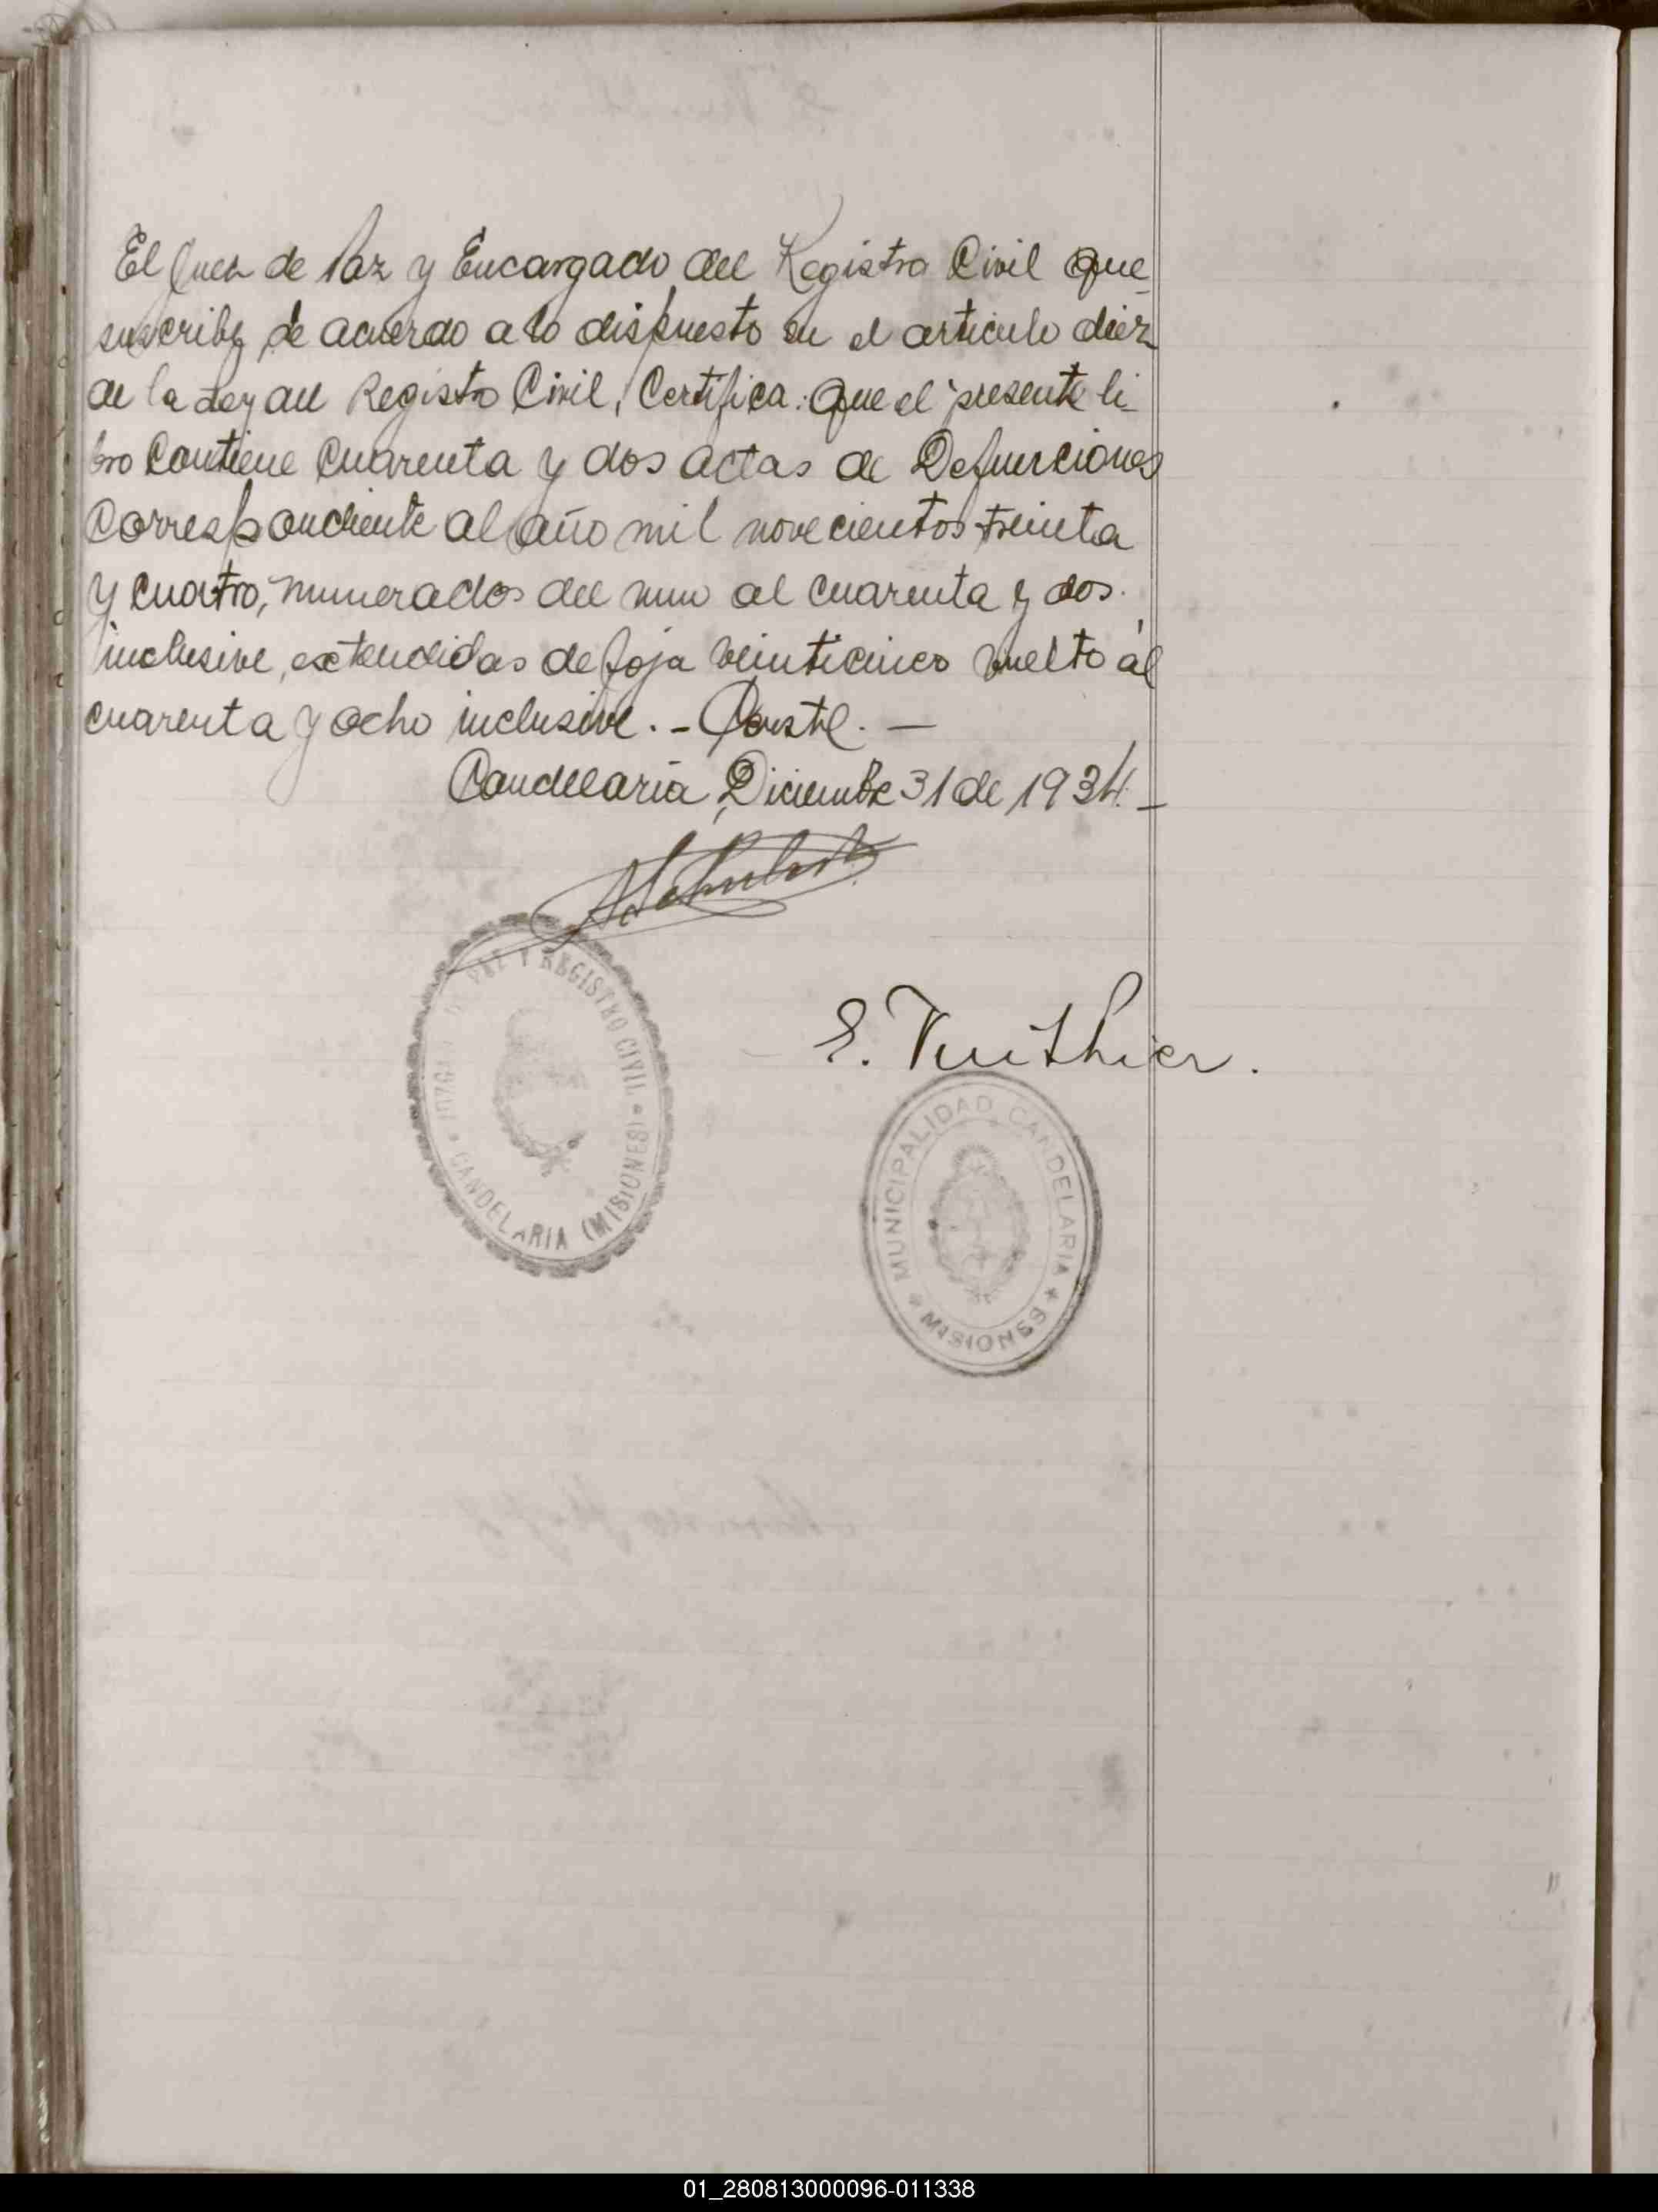 El Juez de Paz y Encargado del Registro Civil que
suscribe, de acuerdo a lo dispuesto en el articulo diez
de la Ley del Registro Civil, Certifica: Que el presente li-
bro Contiene Cuarenta y dos actas de Defunciones
Correspondiente al año mil novecientos treinta
y cuatro, numerados del uno al cuarenta y dos
inclusive, extendidas de foja veinticinco vuelto al
cuarenta y ocho inclusive. - Conste. —
Candelaria, Diciembre 31 de 1934. -
E. Vuithier.
PAZ Y REGISTRO CIVIL
CANDELARIA (MISIONES)
MUNICIPALIDAD CANDELARIA
* MISIONES *
01_280813000096-011338